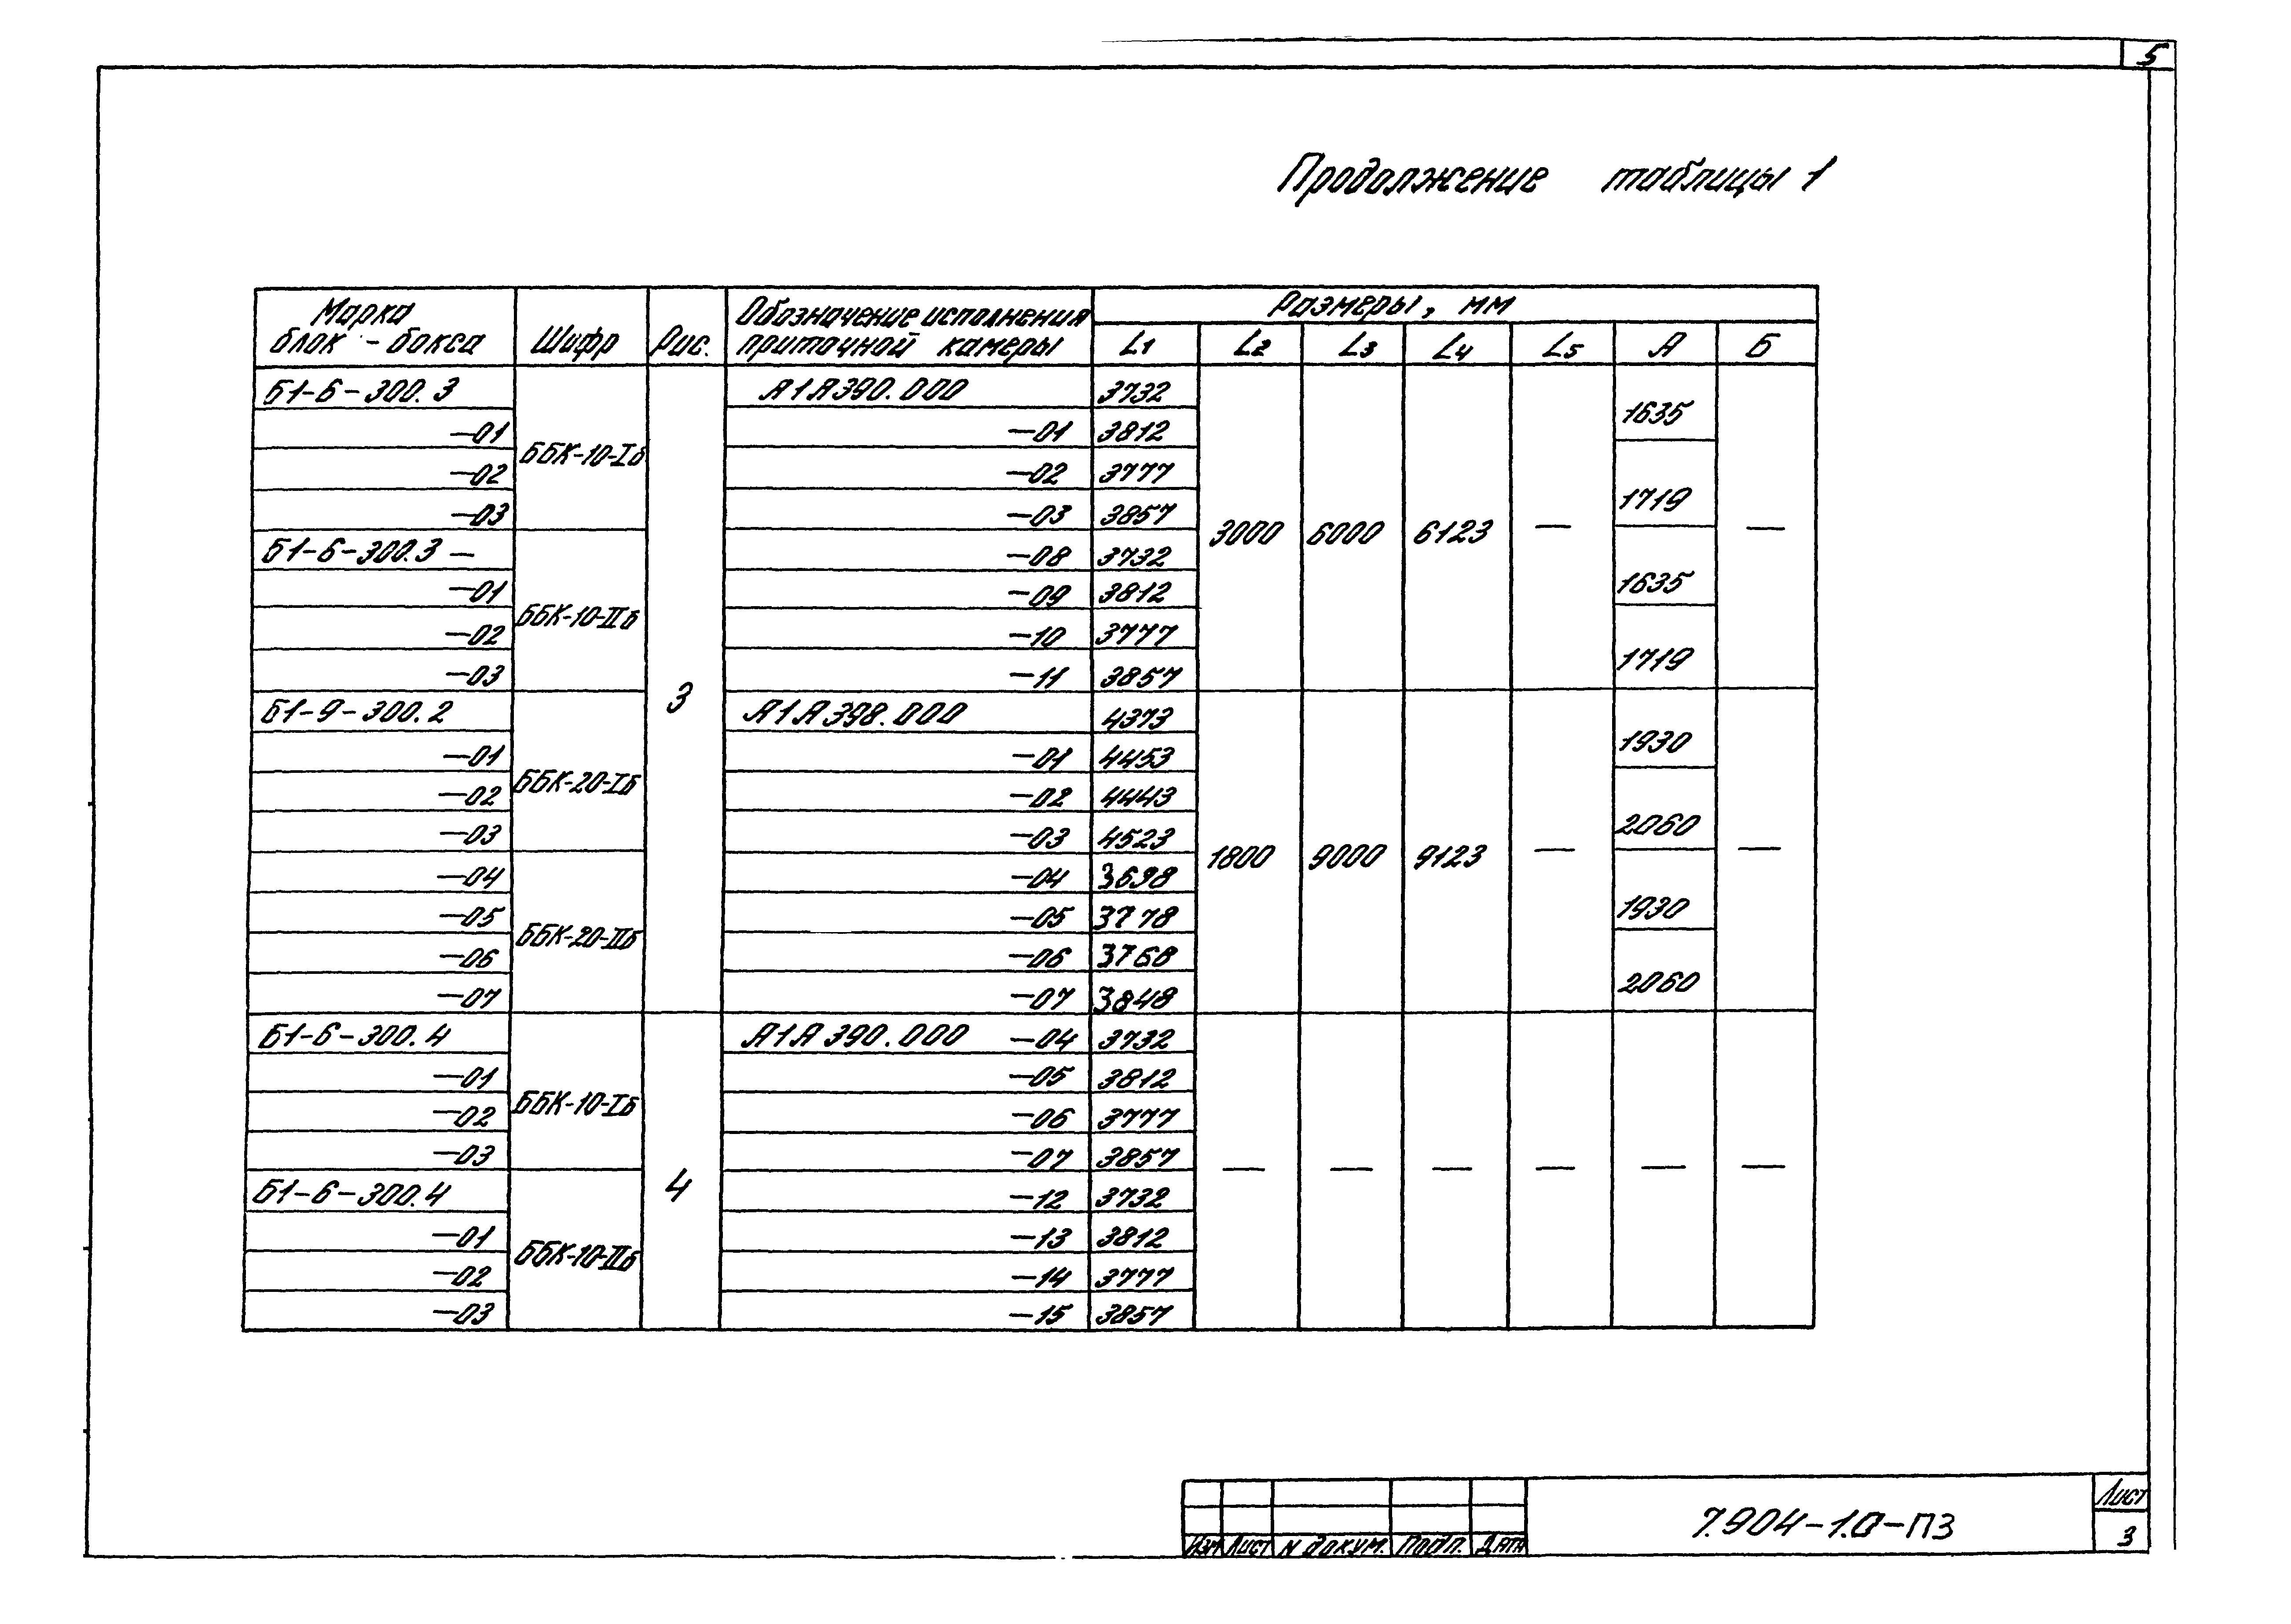 5
Продолжение таблицы 1
Марка блок-бокса Шифр Рис. Обозначение исполнения приточной камеры Размеры, мм
L1 L2 L3 L4 L5 А Б
Б1-6-300.3 А1А390.000 3732
-01 -01 3812 1635
ББК-10-Iб
-02 -02 3777
-03 -03 3857 1719
3000 6000 6123 — —
Б1-6-300.3 — -08 3732
-01 -09 3812 1635
ББК-10-IIб
-02 -10 3777
-03 -11 3857 1719
3
Б1-9-300.2 А1А398.000 4373
-01 -01 4453 1930
ББК-20-Iб
-02 -02 4443
-03 -03 4523 2060
1800 9000 9123 — —
-04 -04 3698
-05 -05 3778 1930
ББК-20-IIб
-06 -06 3768
-07 -07 3848 2060
Б1-6-300.4 А1А390.000 -04 3732
-01 -05 3812
ББК-10-Iб
-02 -06 3777
-03 -07 3857
4 — — — — — —
Б1-6-300.4 -12 3732
-01 -13 3812
ББК-10-IIб
-02 -14 3777
-03 -15 3857
Изм Лист N докум. Подп. Дата
7.904-1.0-ПЗ
Лист
3